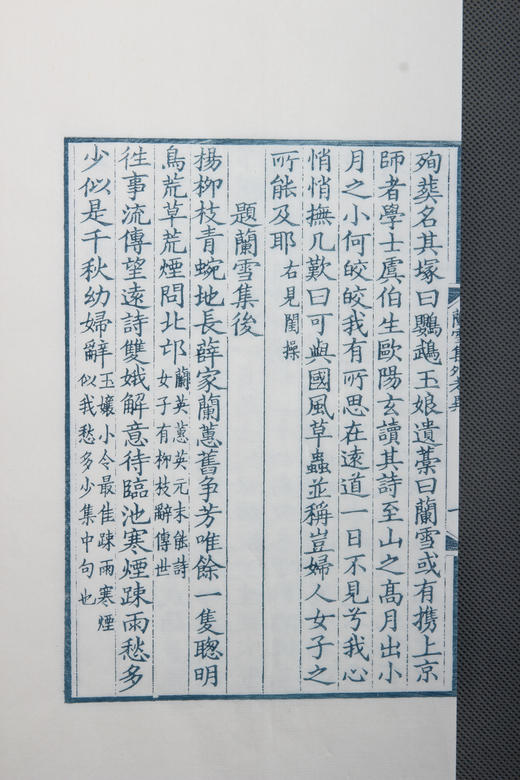 殉葬名其塚曰鸚鵡玉娘遺藁曰蘭雪或有携上京
師者學士虞伯生歐陽玄讀其詩至山之髙月出小
月之小何皎皎我有所思在遠道一日不見兮我心
悄悄撫几歎曰可與國風草蟲並稱豈婦人女子之
所能及耶右見閨操
題蘭雪集後
楊柳枝青蜿地長薛家蘭蕙舊争芳唯餘一隻聰明
鳥荒草荒煙問北邙蘭英蕙英元末能詩女子有柳枝辭傳世
往事流傳望遠詩雙娥解意待臨池寒煙踈雨愁多
少似是千秋幼婦辭玉孃小令最佳踈雨寒煙似我愁多少集中句也
蘭雪集
一